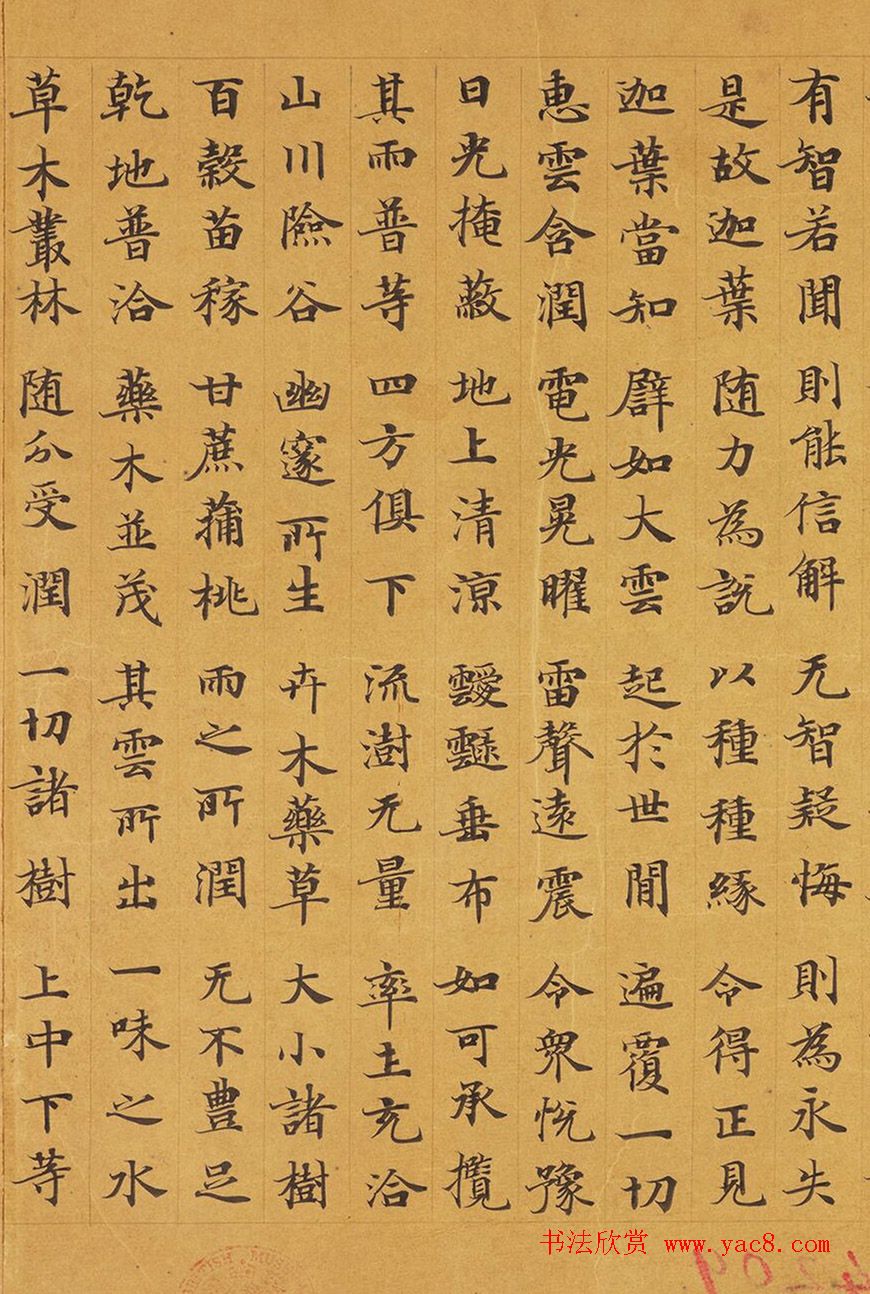 有智若聞 則能信解 无智疑悔 則為永失
是故迦葉 随力為說 以種種緣 令得正見
迦葉當知 譬如大雲 起於世間 遍覆一切
惠雲含潤 電光晃曜 雷聲遠震 令眾悅豫
日光掩蔽 地上清涼 靉靆垂布 如可承攬
其雨普等 四方俱下 流澍无量 率土充洽
山川險谷 幽邃所生 卉木藥草 大小諸樹
百穀苗稼 甘蔗蒱桃 雨之所潤 无不豊足
乾地普洽 藥木並茂 其雲所出 一味之水
草木叢林 随分受潤 一切諸樹 上中下等
书法欣赏 www.yac8.com